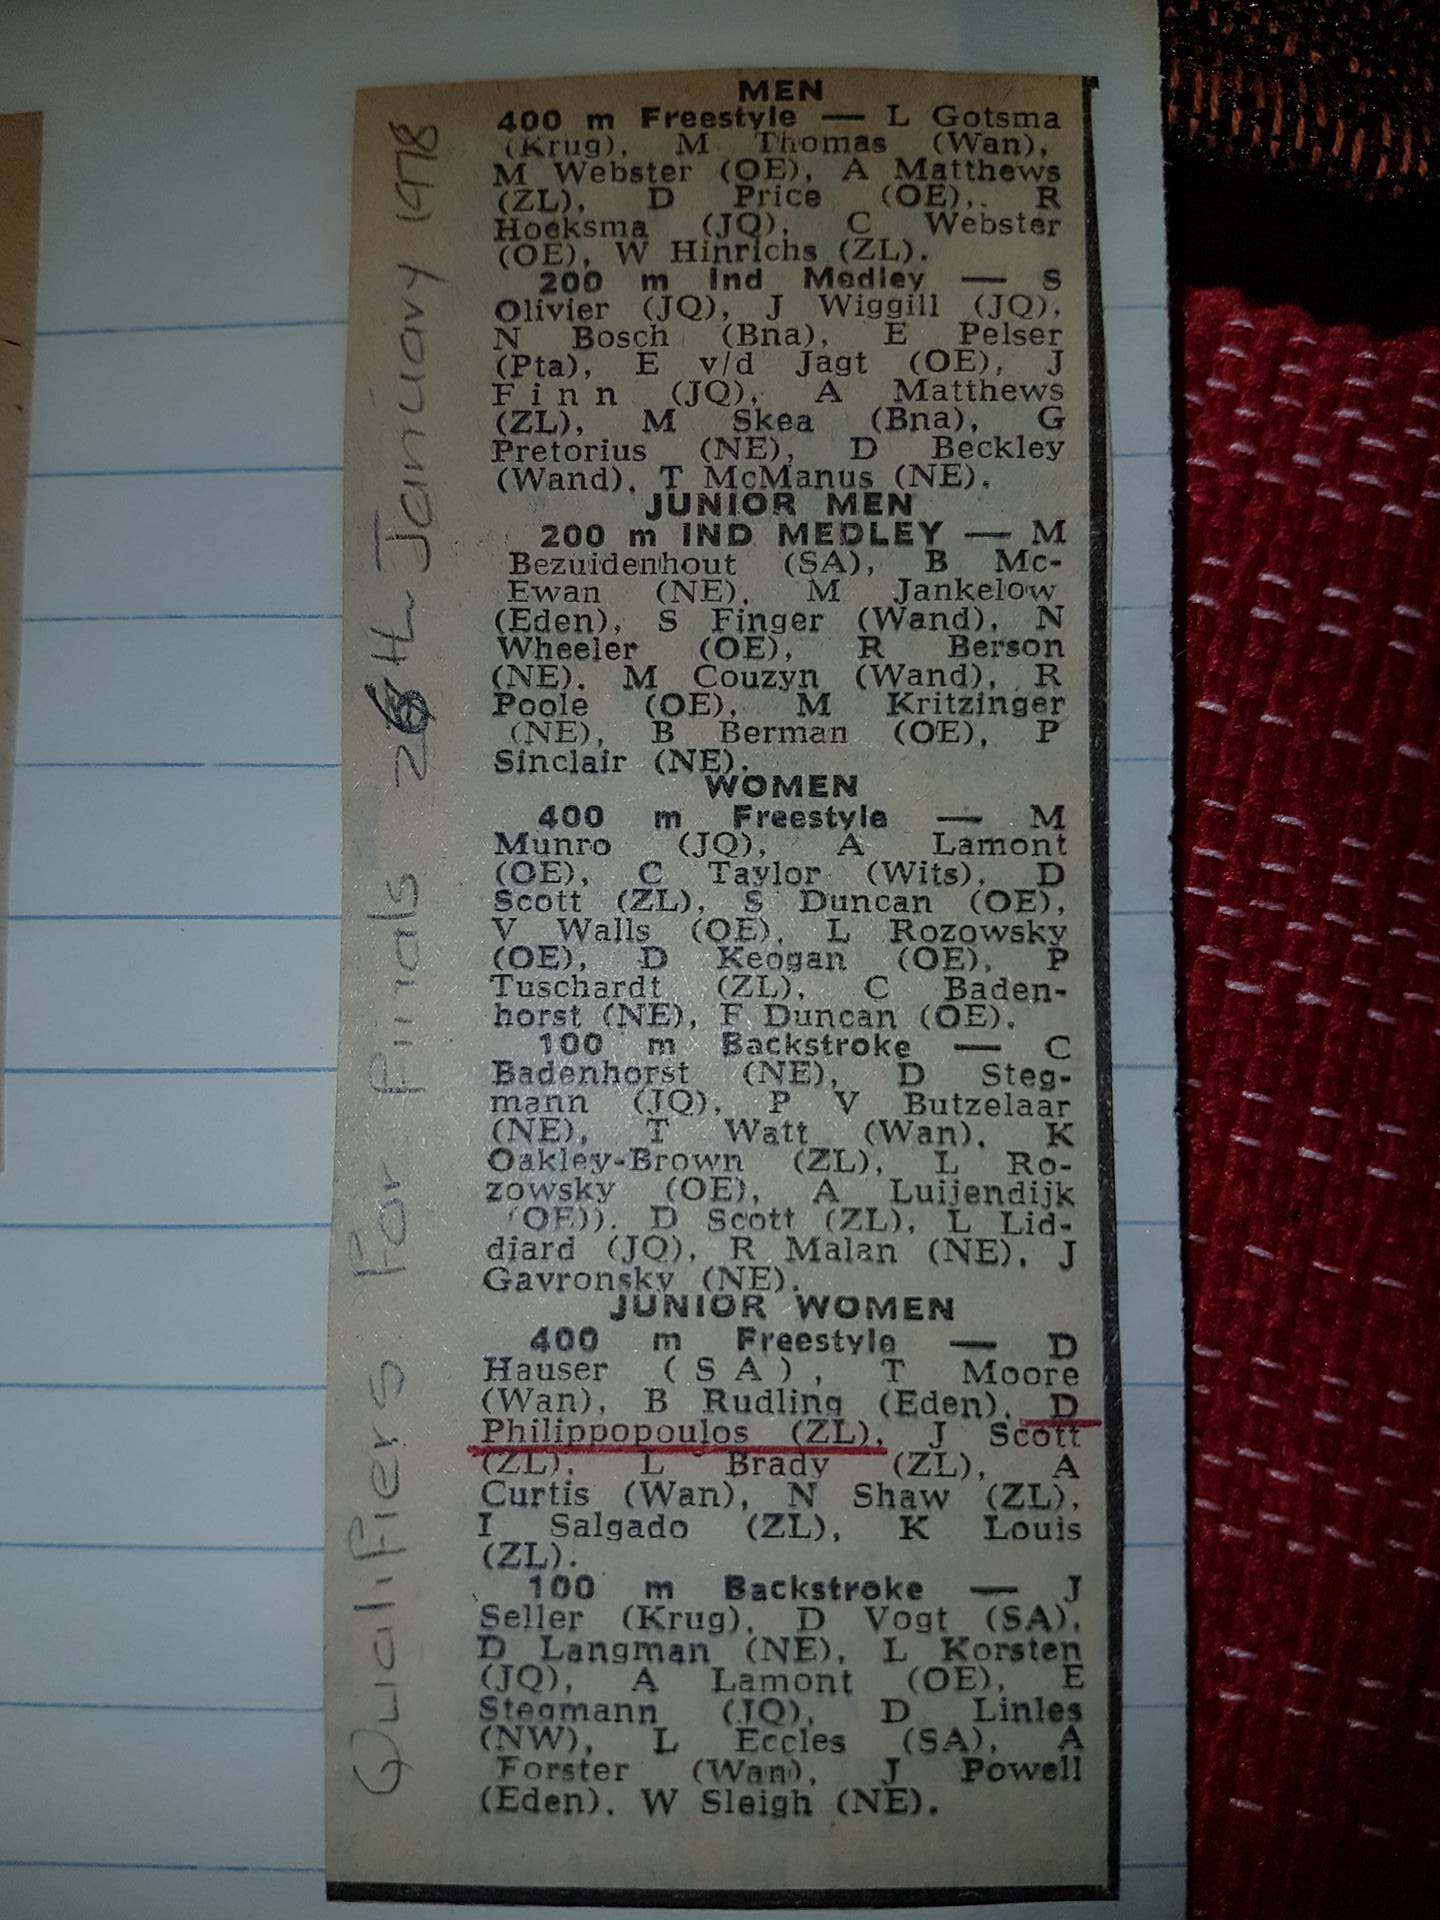 Qualifiers For finals 26th January 1978
MEN
400 m Freestyle — L Gotsma
(Krug), M Thomas (Wan),
M Webster (OE), A Matthews
(ZL), D Price (OE), R
Hoeksma (JQ), C Webster
(OE), W Hinrichs (ZL).
200 m Ind Medley — S
Olivier (JQ), J Wiggill (JQ),
N Bosch (Bna), E Pelser
(Pta), E v/d Jagt (OE), J
Finn (JQ), A Matthews
(ZL), M Skea (Bna), G
Pretorius (NE), D Beckley
(Wand), T McManus (NE).
JUNIOR MEN
200 m IND MEDLEY — M
Bezuidenhout (SA), B Mc-
Ewan (NE), M Jankelow
(Eden), S Finger (Wand), N
Wheeler (OE), R Berson
(NE), M Couzyn (Wand), R
Poole (OE), M Kritzinger
(NE), B Berman (OE), P
Sinclair (NE).
WOMEN
400 m Freestyle — M
Munro (JQ), A Lamont
(OE), C Taylor (Wits), D
Scott (ZL), S Duncan (OE),
V Walls (OE), L Rozowsky
(OE), D Keogan (OE), P
Tuschardt (ZL), C Baden-
horst (NE), F Duncan (OE).
100 m Backstroke — C
Badenhorst (NE), D Steg-
mann (JQ), P V Butzelaar
(NE), T Watt (Wan), K
Oakley-Brown (ZL), L Ro-
zowsky (OE), A Luijendijk
(OE)). D Scott (ZL), L Lid-
diard (JQ), R Malan (NE), J
Gavronsky (NE).
JUNIOR WOMEN
400 m Freestyle — D
Hauser (SA), T Moore
(Wan), B Rudling (Eden), D
Philippopoulos (ZL), J Scott
(ZL), L Brady (ZL), A
Curtis (Wan), N Shaw (ZL),
I Salgado (ZL), K Louis
(ZL).
100 m Backstroke — J
Seller (Krug), D Vogt (SA),
D Langman (NE), L Korsten
(JQ), A Lamont (OE), E
Stegmann (JQ), D Linles
(NW), L Eccles (SA), A
Forster (Wan), J Powell
(Eden), W Sleigh (NE).